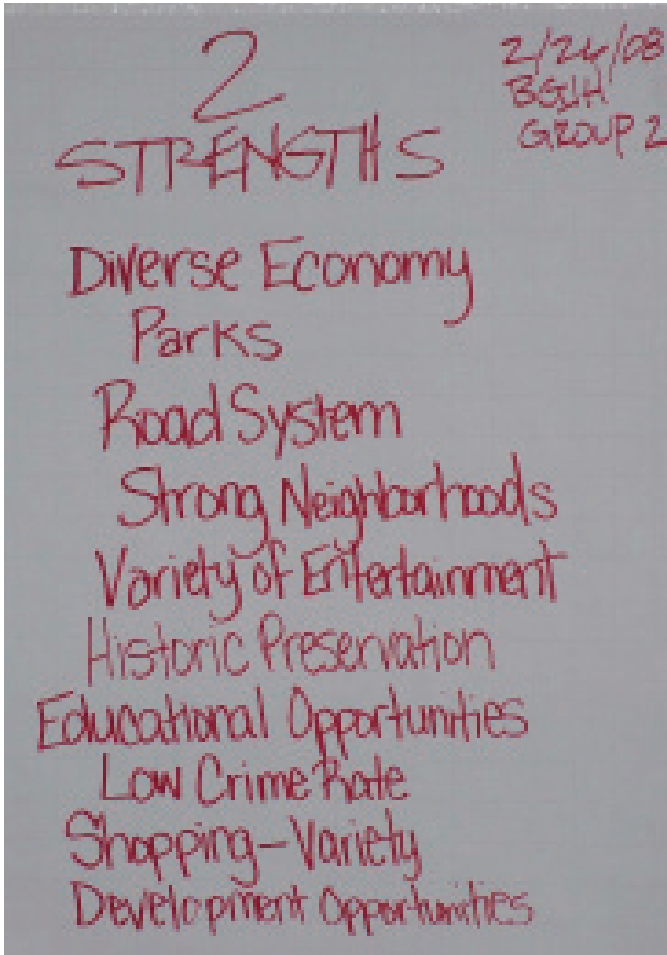 2
STRENGTHS
2/26/08
GROUP 2
Diverse Economy
Parks
Road System
Strong Neighborhoods
Variety of Entertainment
Historic Preservation
Educational Opportunities
Low Crime Rate
Shopping-Variety
Development Opportunities